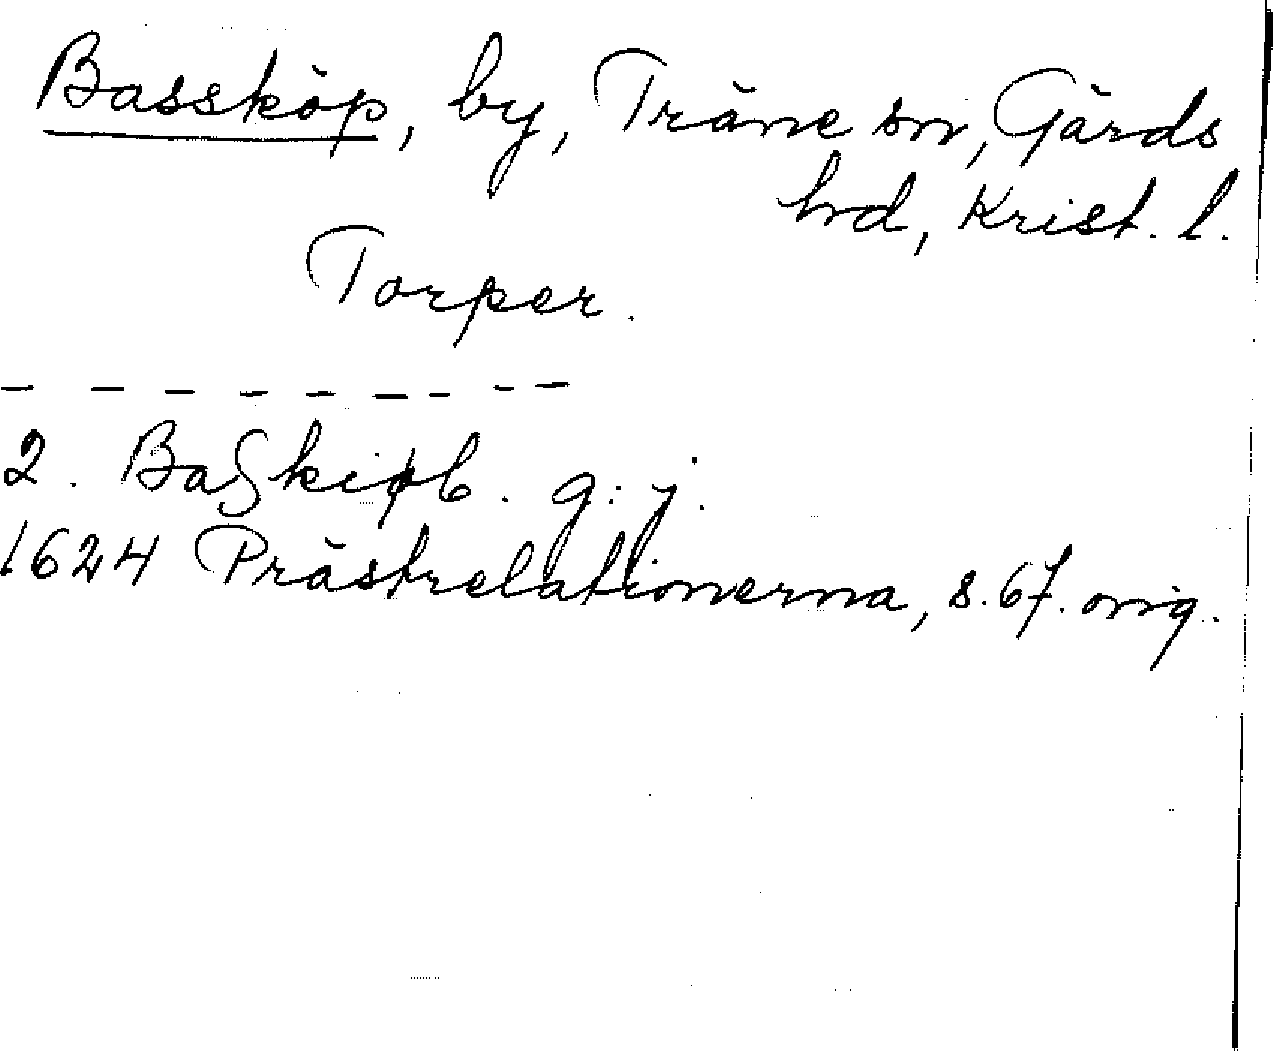 Bassköp, by, Träne sn, Gärds
hd, Krist. l.
Torper.
- - - - - - - - -
2. Baßkiøb. g: j.
1624 Prästrelationerna, s. 67. orig.